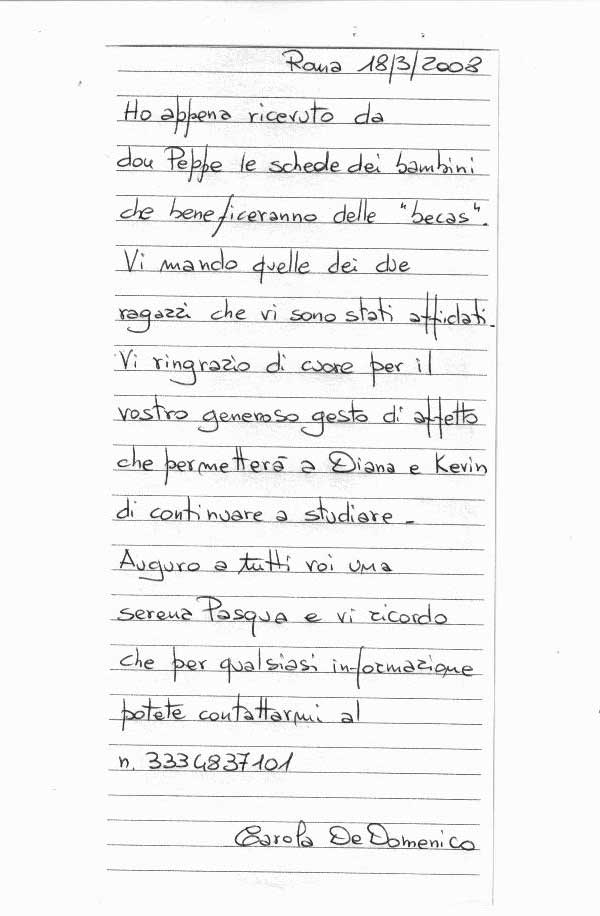 Roma 18/3/2008
Ho appena ricevuto da
don Peppe le schede dei bambini
che beneficeranno delle "becas".
Vi mando quelle dei due
ragazzi che vi sono stati affidati.
Vi ringrazio di cuore per il
vostro generoso gesto di affetto
che permetterà a Diana e Kevin
di continuare a studiare.
Auguro a tutti voi una
serena Pasqua e vi ricordo
che per qualsiasi informazione
potete contattarmi al
n. 3334837101
Carola De Domenico